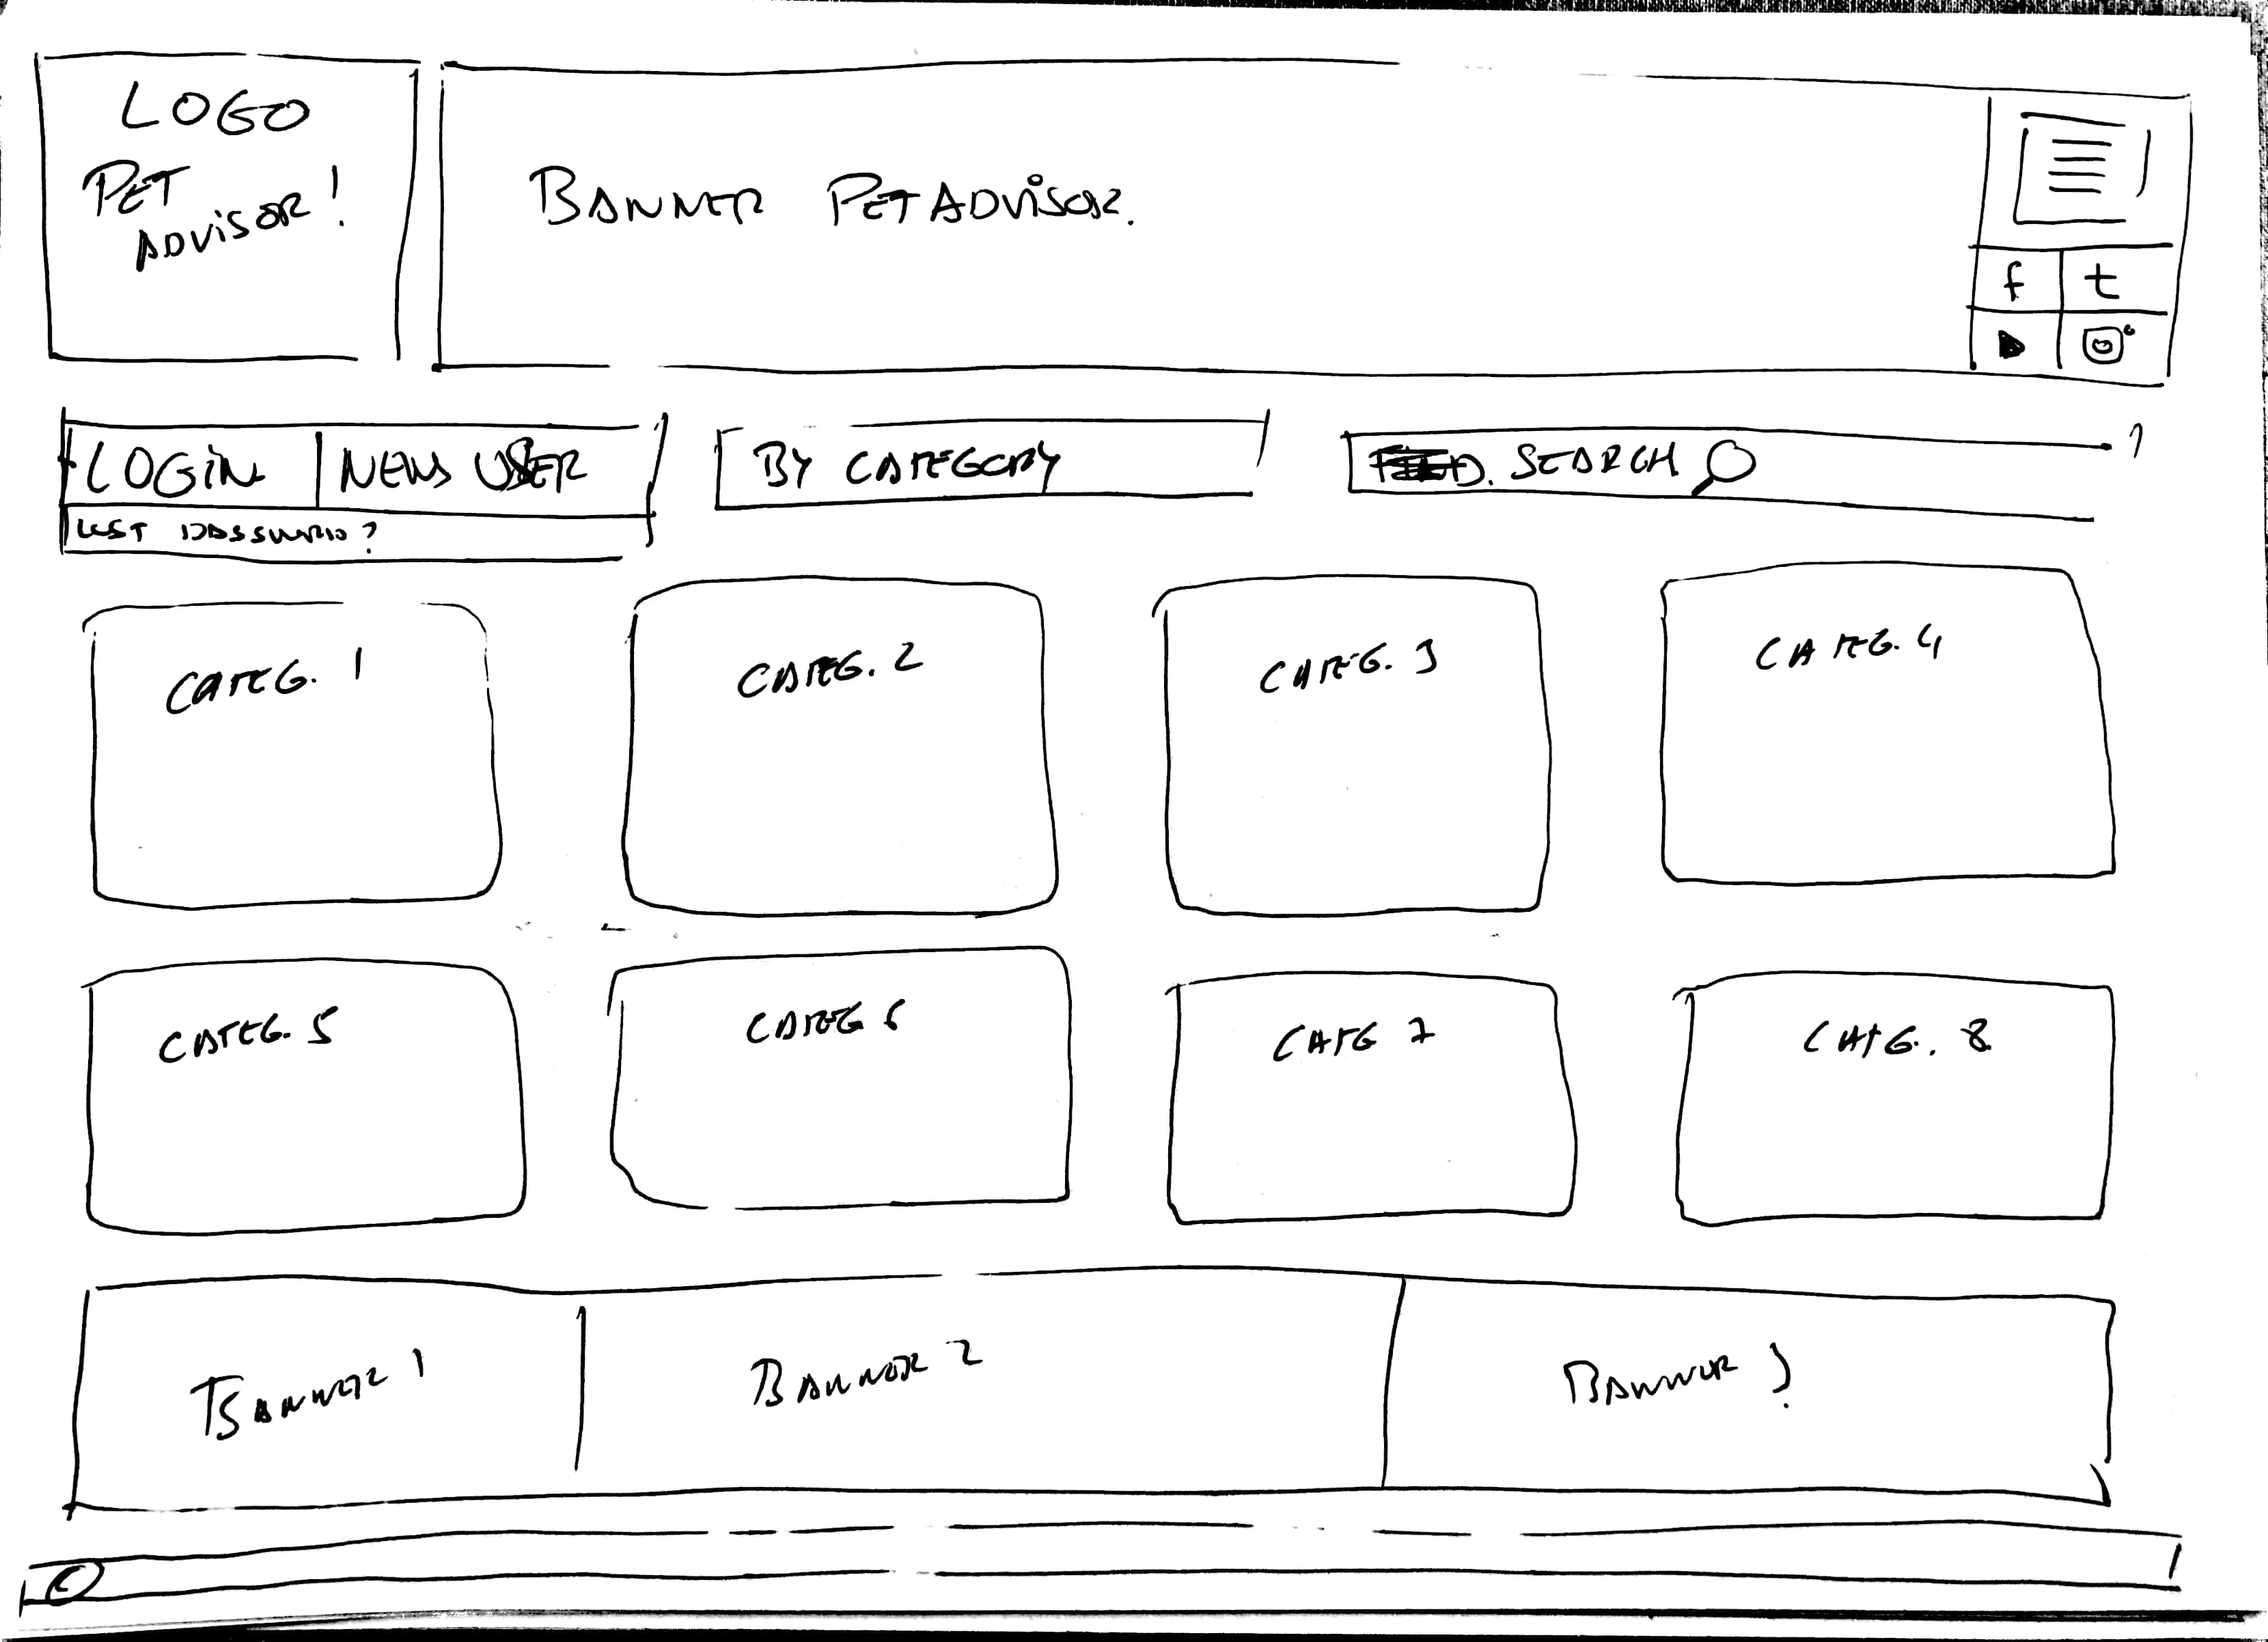 LOGO
PET
ADVISOR!
BANNER PETADVISOR.
f t
LOGIN NEW USER
BY CATEGORY
SEARCH
LOST
CATEG. 1
CATEG. 2
CATEG. 3
CATEG. 4
CATEG. 5
CATEG 6
CATG 7
CATG. 8
BANNER 1
BANNER 2
BANNER 3
©